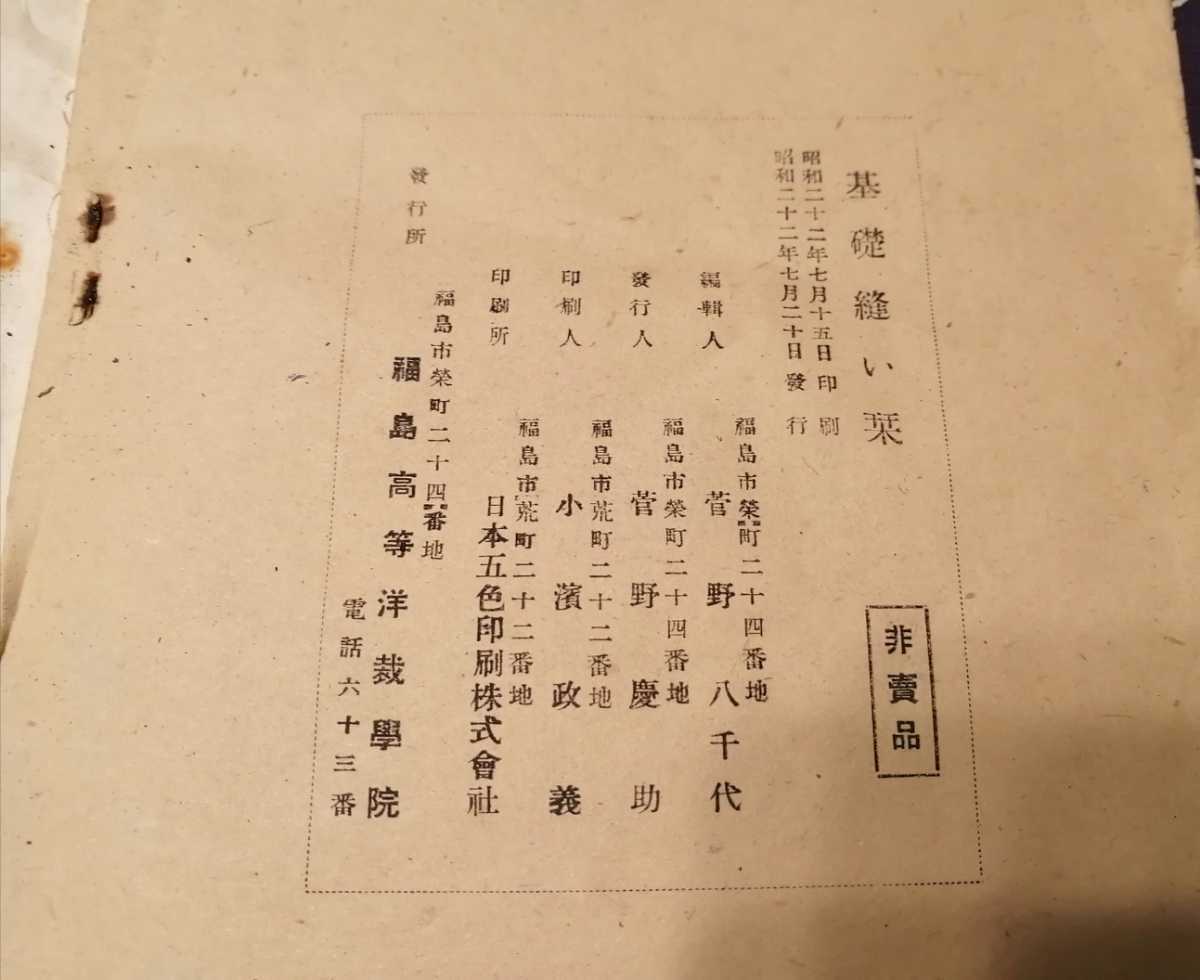 基礎縫い栞
非賣品
昭和二十二年七月十五日印刷
昭和二十二年七月二十日發行
福島市榮町二十四番地
編輯人 菅野八千代
福島市榮町二十四番地
發行人 菅野慶助
福島市荒町二十二番地
印刷人 小濱政義
福島市荒町二十二番地
印刷所 日本五色印刷株式會社
福島市榮町二十四番地
發行所 福島高等洋裁學院
電話六十三番